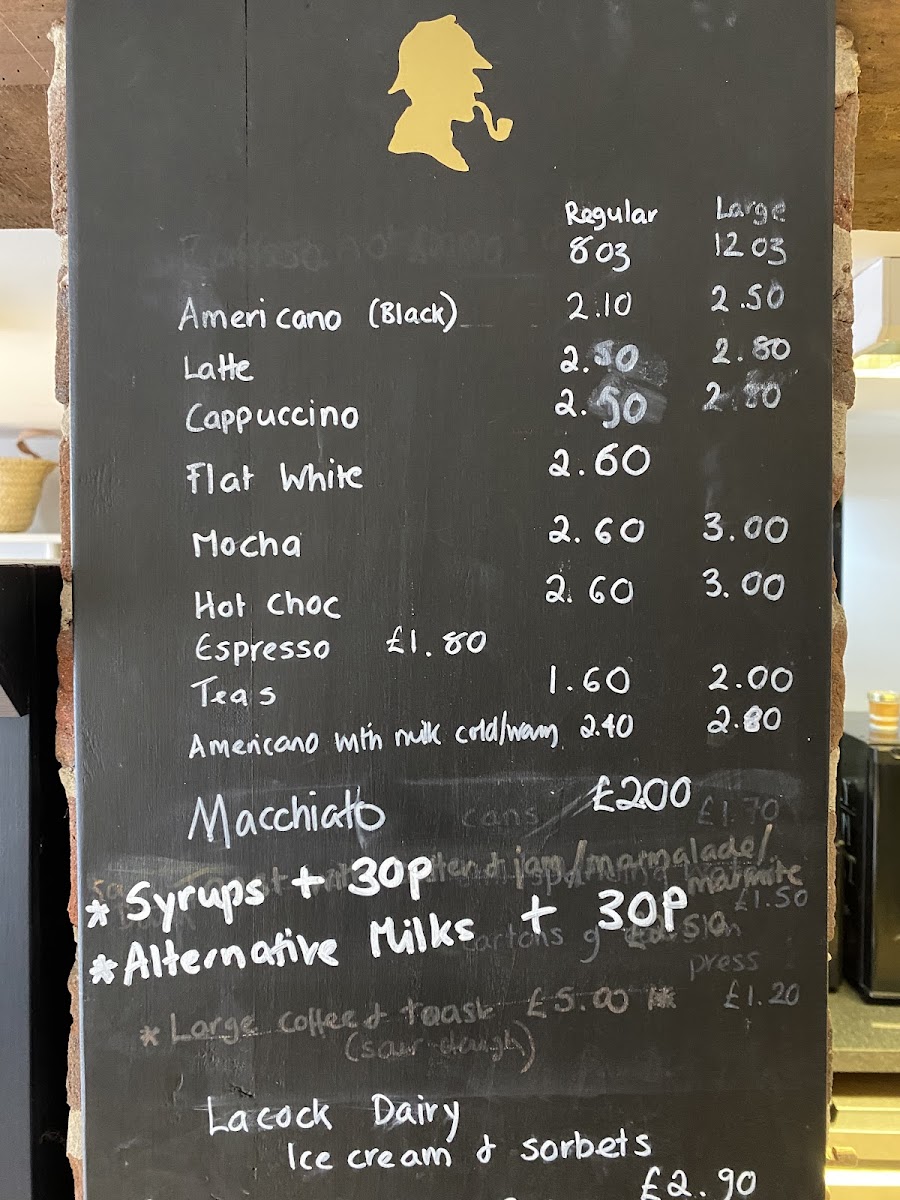 Regular Large
8oz 12oz
Americano (Black) 2.10 2.50
Latte 2.50 2.80
Cappuccino 2.50 2.80
Flat White 2.60
Mocha 2.60 3.00
Hot Choc 2.60 3.00
Espresso £1.80
Teas 1.60 2.00
Americano with milk cold/warm 2.40 2.80
Macchiato £200
cans £1.70
jam/marmalade/
marmite
* Syrups + 30P
£1.50
* Alternative Milks + 30P
cartons
press
£1.20
* Large coffee & toast £5.00 *
(sour-dough)
Lacock Dairy
Ice cream & sorbets
£2.90